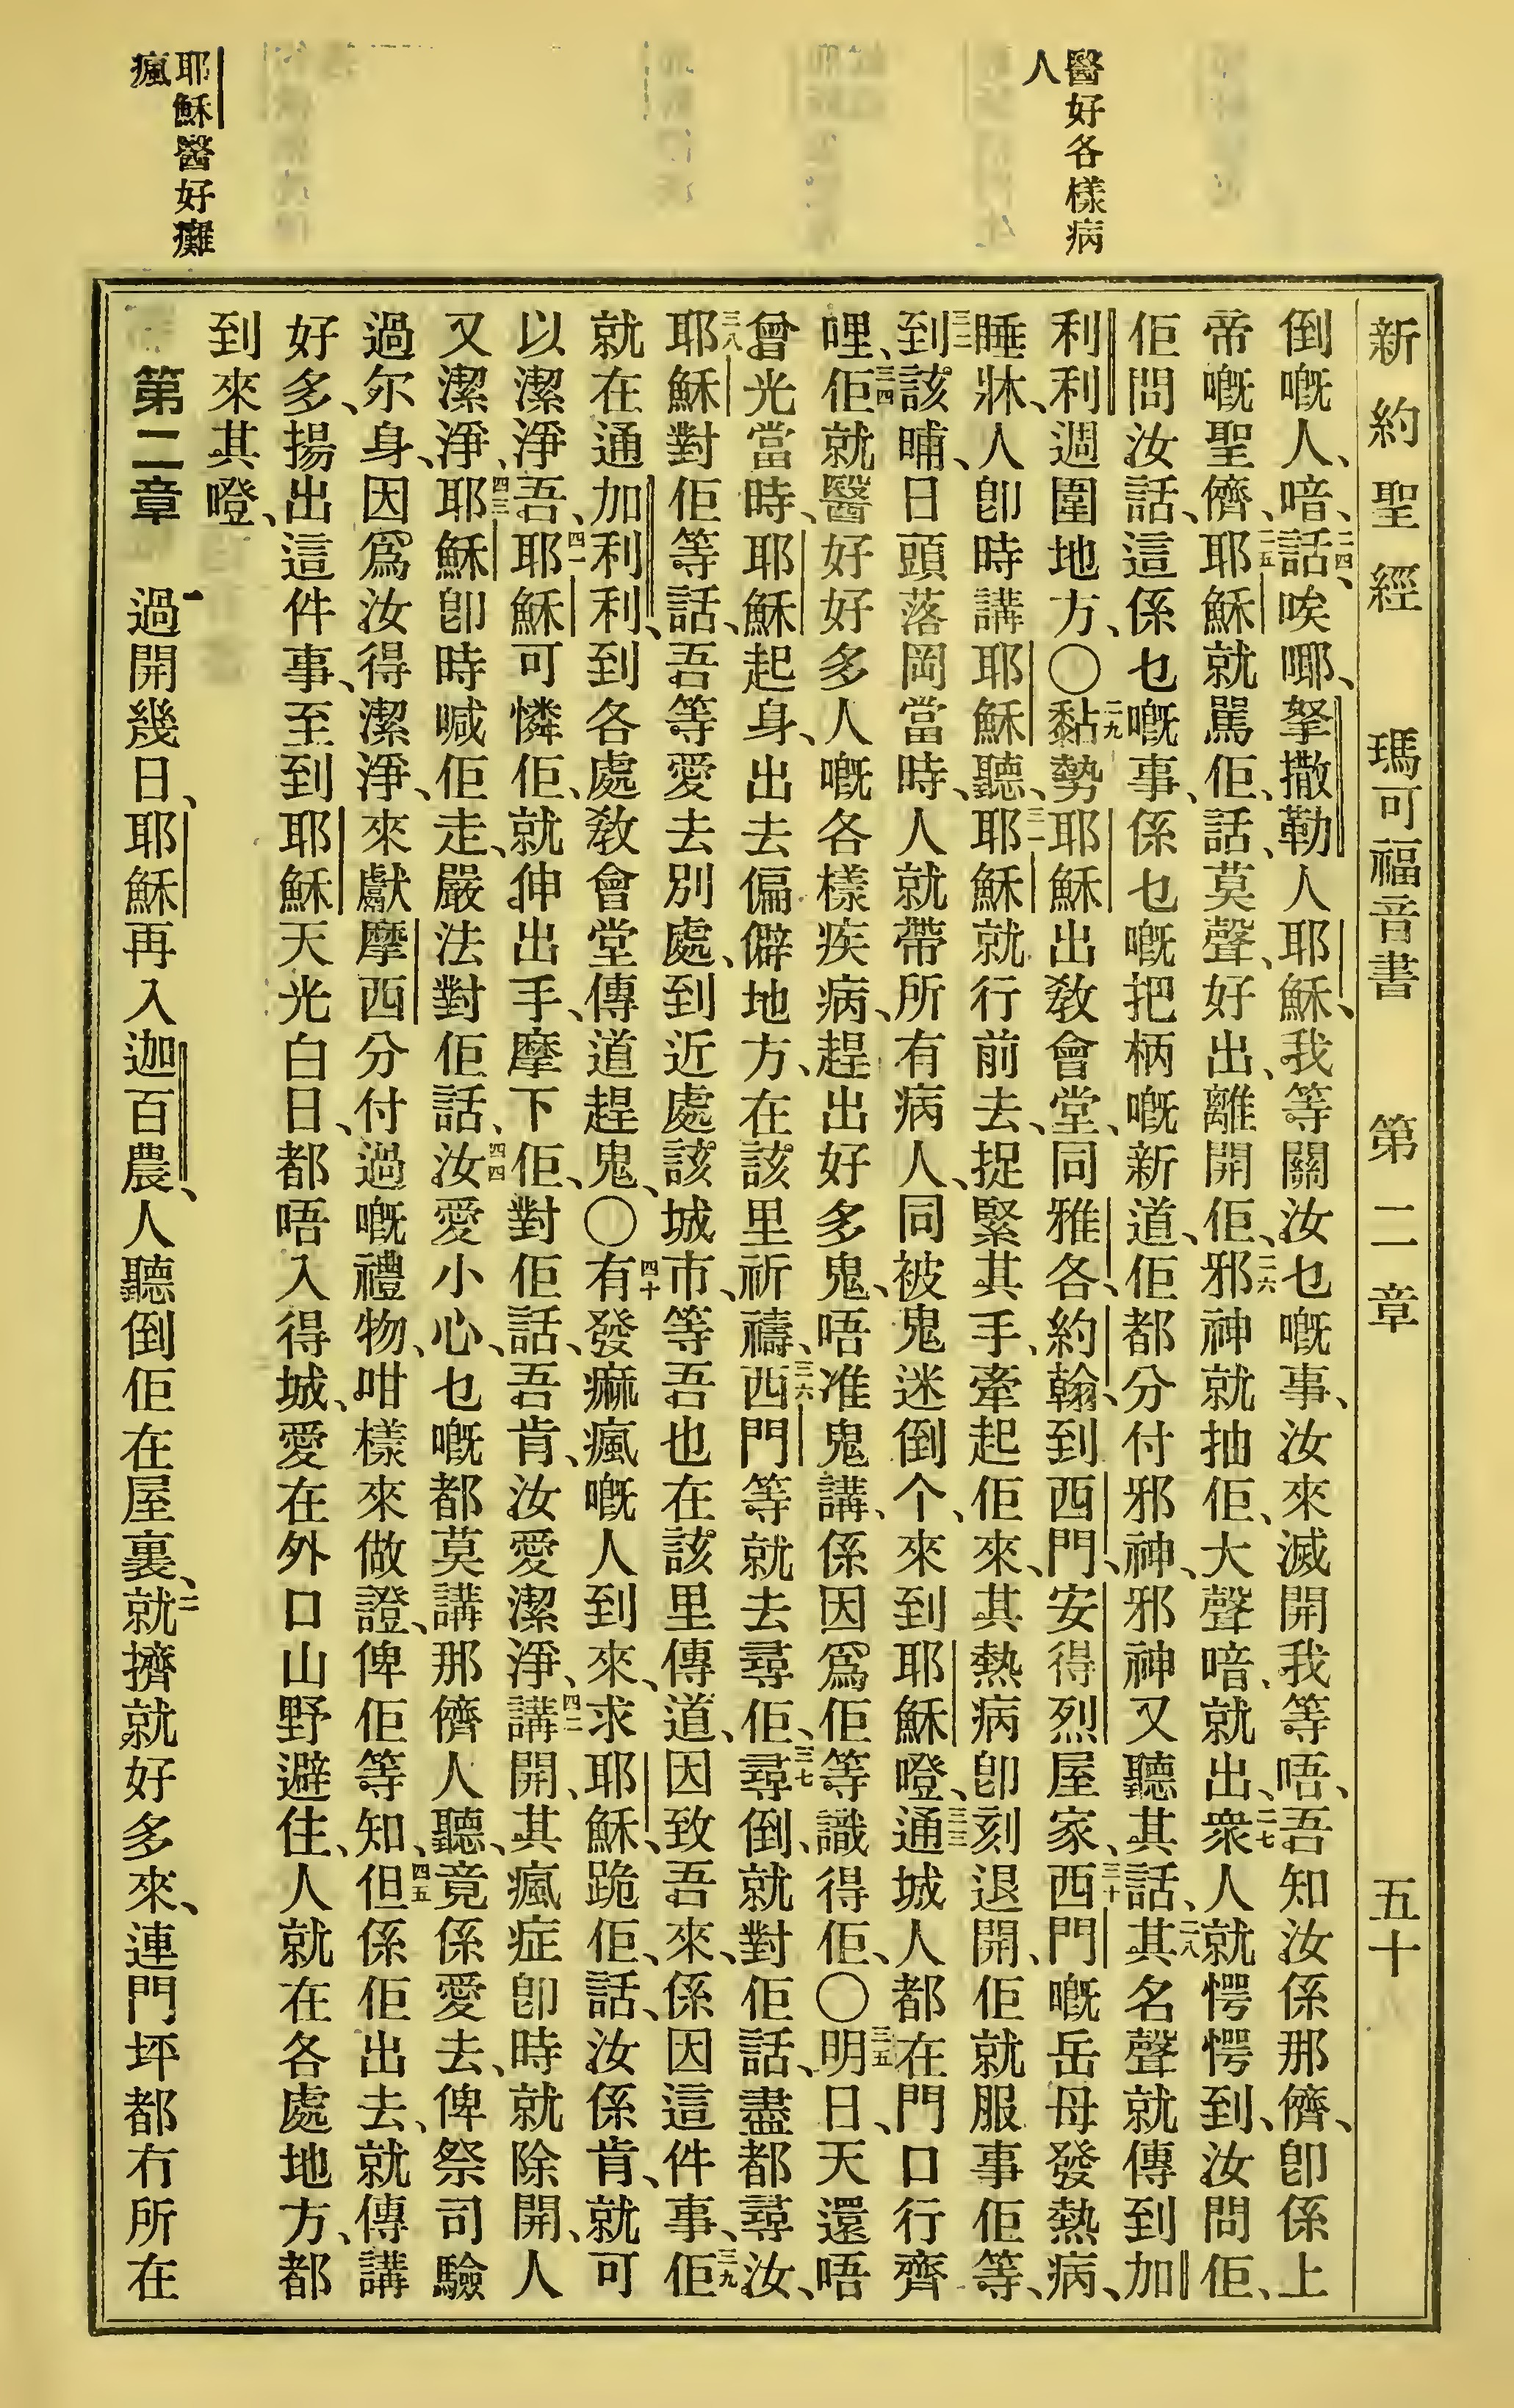 醫好各樣病
人
耶穌醫好癱
瘋
新約聖經 瑪可福音書 第二章 五十
倒嘅人、喑、二四話、唉㖿、拏撒勒人耶穌、我等關汝乜嘅事、汝來滅開我等唔、吾知汝係那儕、卽係上
帝嘅聖儕、二五耶穌就駡佢、話、莫聲、好出、離開佢、二六邪神就抽佢、大聲喑、就出、二七衆人就愕愕到、汝問佢、
佢問汝話、這係乜嘅事、係乜嘅把柄嘅新道、佢都分付邪神、邪神又聽其話、二八其名聲就傳到加
利利週圍地方、〇二九黏勢、耶穌出敎會堂、同雅各、約翰、到西門、安得烈屋家、三十西門嘅岳母發熱病、
睡牀、人卽時講耶穌聽、三一耶穌就行前去、捉緊其手、牽起佢來、其熱病卽刻退開、佢就服事佢等、
三二到該晡、日頭落岡當時、人就帶所有病人、同被鬼迷倒个、來到耶穌噔、三三通城人都在門口行齊
哩、三四佢就醫好好多人嘅各樣疾病、趕出好多鬼、唔准鬼講、係因爲佢等識得佢、〇三五明日、天還唔
曾光當時、耶穌起身、出去偏僻地方、在該里祈禱、三六西門等就去尋佢、三七尋倒、就對佢話、盡都尋汝、
三八耶穌對佢等話、吾等愛去別處、到近處該城市、等吾也在該里傳道、因致吾來、係因這件事、三九佢
就在通加利利、到各處敎會堂、傳道趕鬼、〇四十有發痲瘋嘅人到來、求耶穌、跪佢、話、汝係肯、就可
以潔淨吾、四一耶穌可憐佢、就伸出手、摩下佢、對佢話、吾肯、汝愛潔淨、四二講開、其瘋症卽時就除開、人
又潔淨、四三耶穌卽時喊佢走、嚴法對佢話、四四汝愛小心、乜嘅都莫講那儕人聽、竟係愛去、俾祭司驗
過尔身、因爲汝得潔淨、來獻摩西分付過嘅禮物、咁樣來做證、俾佢等知、四五但係佢出去、就傳講
好多、揚出這件事、至到耶穌天光白日、都唔入得城、愛在外口山野避住、人就在各處地方、都
到來其噔、
第二章 一過開幾日、耶穌再入迦百農、人聽倒佢在屋裏、二就擠就好多來、連門坪都冇所在